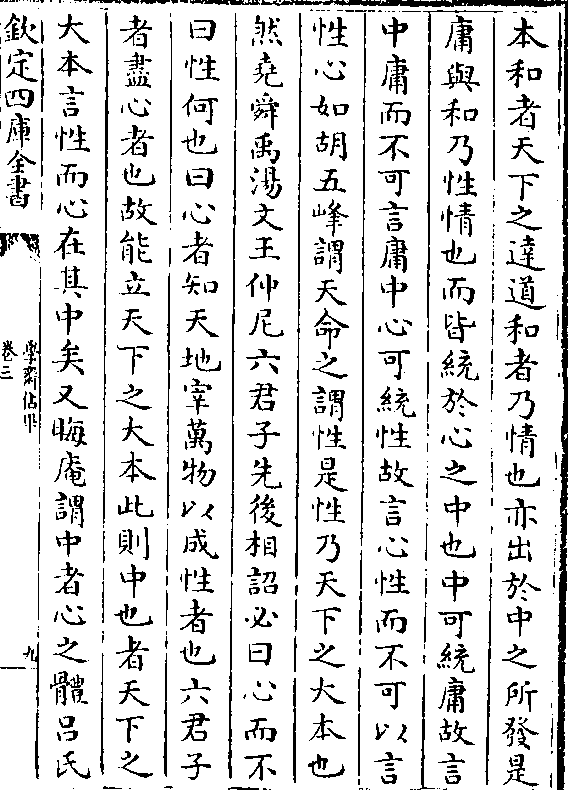 本和者天下之達道和者乃情也亦出於中之所發是
庸與和乃性情也而皆統於心之中也中可統庸故言
中庸而不可言庸中心可統性故言心性而不可以言
性心如胡五峰謂天命之謂性是性乃天下之大本也
然堯舜禹湯文王仲尼六君子先後相詔必曰心而不
曰性何也曰心者知天地宰萬物以成性者也六君子
者盡心者也故能立天下之大本此則中也者天下之
大本言性而心在其中矣又晦庵謂中者心之體呂氏
欽定四庫全書
學齋佔畢
卷三
九